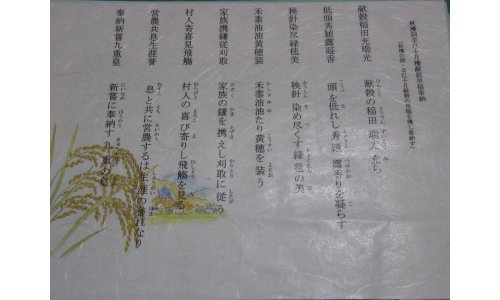 献穀稲田充瑞光 献穀の稲田 瑞光 充ち
低頭秀頴露凝香 頭を低れし秀頴 露 香りを凝らす
秧針染尽緑毯美 秧針 染め尽くす 緑毯の美
禾泰油油黄穂装 禾泰油油たり 黄穂を装う
家族携鎌従刈取 家族の鎌を 携えし 刈取に従う
村人寄喜見飛觴 村人の 喜び寄りし 飛觴を見る
営農共息生涯誉 息と共に営農するは 生涯の誉れなり
奉納新嘗九重皇 新嘗に奉納す 九重の皇